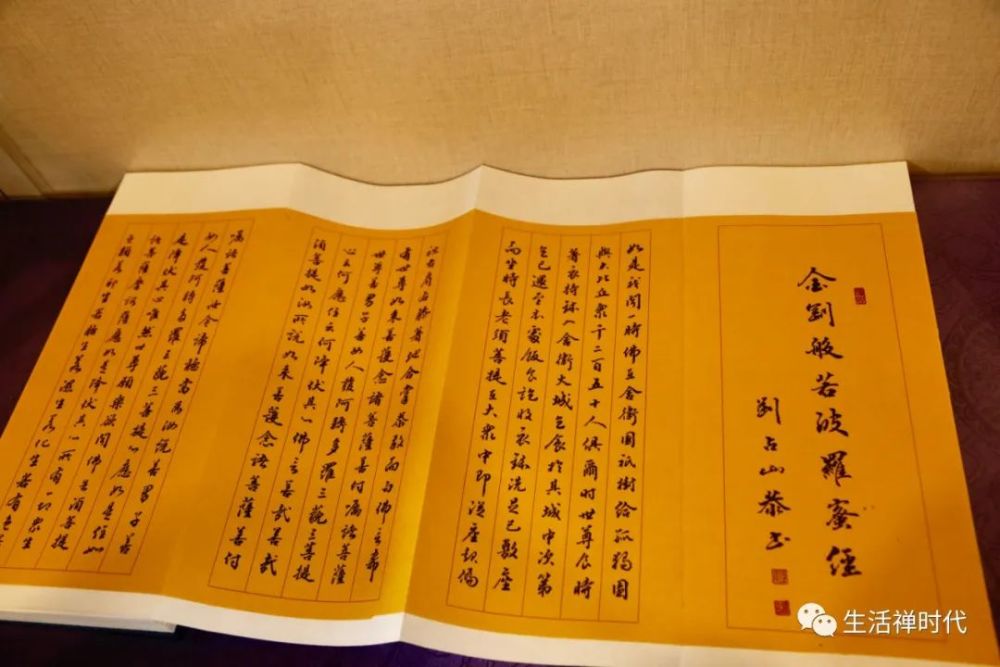 金剛般若波羅蜜經
劉占山恭书
如是我聞一時佛在舍衛國祇樹給孤獨園
與大比丘衆千二百五十人俱爾時世尊食時
著衣持鉢入舍衛大城乞食於其城中次第
乞已還至本處飯食訖收衣鉢洗足已敷座
而坐時長老須菩提在大衆中即從座起偏
袒右肩右膝著地合掌恭敬而白佛言希
有世尊如來善護念諸菩薩善付囑諸菩薩
世尊善男子善女人發阿耨多羅三藐三菩提
心云何應住云何降伏其心佛言善哉善哉
須菩提如汝所說如來善護念諸菩薩善付
囑諸菩薩汝今諦聽當為汝說善男子善
女人發阿耨多羅三藐三菩提心應如是住如
是降伏其心唯然世尊願樂欲聞佛告須菩提
諸菩薩摩訶薩應如是降伏其心所有一切衆生
之類若卵生若胎生若濕生若化生若有色
生活禅时代